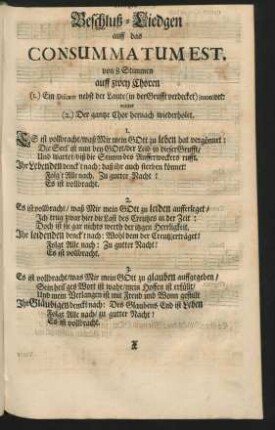 Beschluß-Liedgen
auff das
CONSUMMATUM EST.
von 8 Stimmen
auff zwey Choren
(1.) Ein nebst der Laute (in der Grufft verdecket)
(2.) Der gantze Chor hernach wiederholet.
1.
ES ist vollbracht/ waß Mir mein GOtt zu leben hat vergönnet:
Die Seel ist nun bey GOtt/ der Leib in dieser Grufft/
Und wartet/ biß die Stimm des Aufferweckers rufft.
Ihr Lebenden denckt nach: daß ihr auch sterben könnet!
Folgt Alle nach. Zu gutter Nacht!
Es ist vollbracht.
2.
Es ist vollbracht/ waß Mir mein GOtt zu leiden aufferleget/
Ich trug zwar hier die Last des Creutzes in der Zeit:
Doch ist sie gar nichts werth der ihgen Herrligkeit.
Ihr leidenden denckt nach: Wohl dem der Creutz erträget!
Folgt Alle nach: Zu gutter Nacht!
Es ist vollbracht.
3.
Es ist vollbracht/ was Mir mein GOtt zu glauben auffgegeben/
Sein heilges Wort ist wahr/ mein Hoffen ist erfüllt/
Und mein Verlangen ist mit Freud und Wonn gestillt
Ihr Gläubigen denckt nach: Des Glaubens End ist Leben
Folgt Alle nach/ zu gutter Nacht!
Es ist vollbracht.